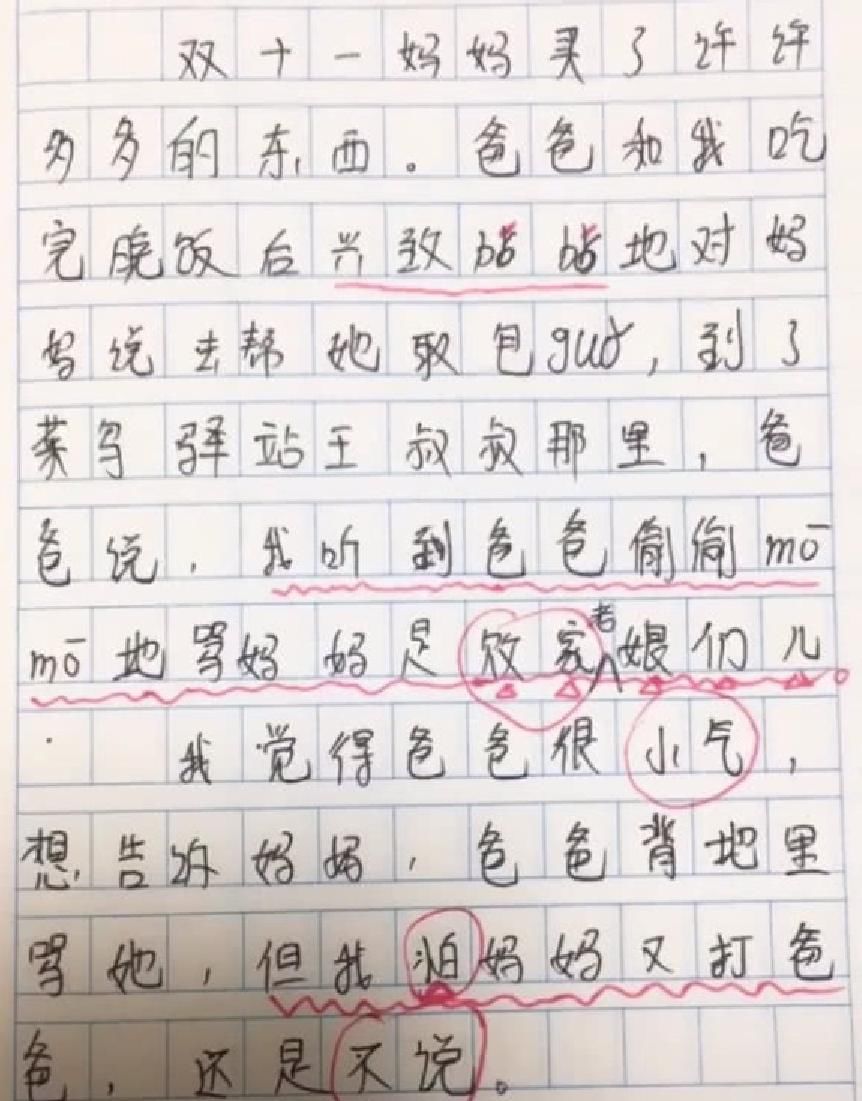 双十一妈妈买了许许
多多的东西。爸爸和我吃
完晚饭后兴致bó bó地对妈
妈说去帮她取包guǒ,到了
菜鸟驿站王叔叔那里,爸
爸说,我听到爸爸偷偷mō
mō地骂妈妈是败家老娘们儿。
我觉得爸爸很小气,
想告诉妈妈,爸爸背地里
骂她,但我怕妈妈又打爸
爸,还是不说。